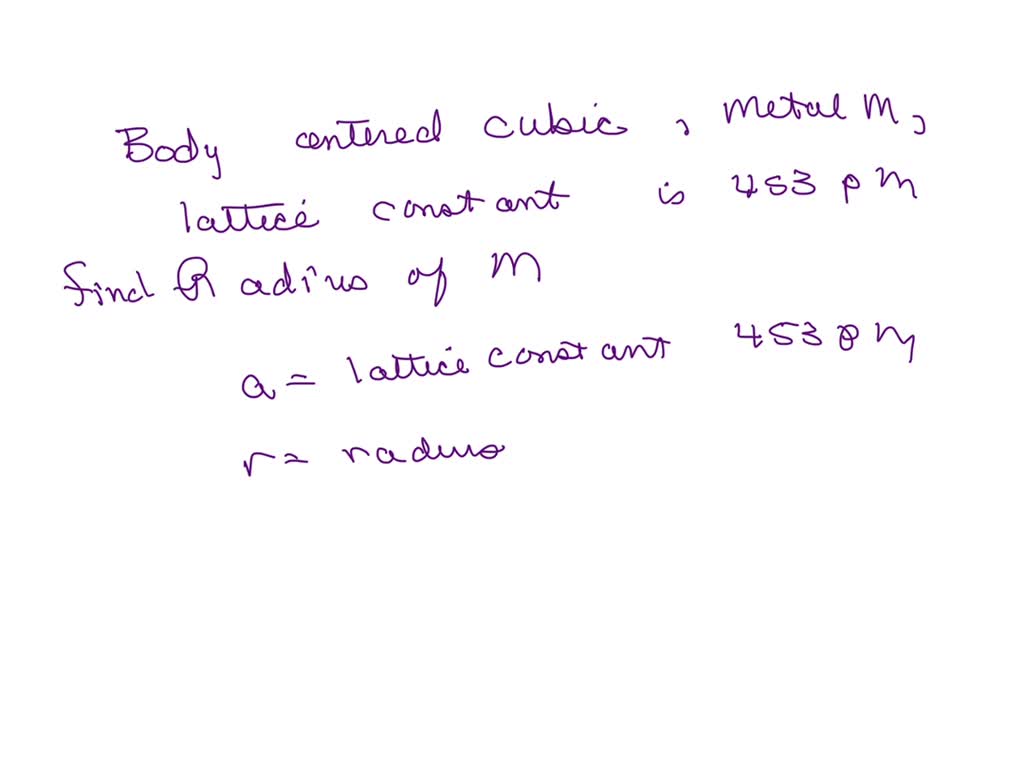 Body centered cubic, metal M,
lattice constant is 453 pm
find Radius of M
a = lattice constant 453 pm
r = radius